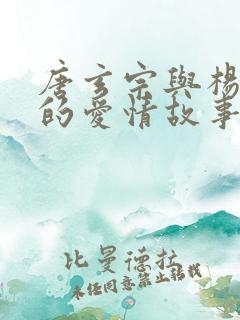 唐玄宗與楊
的愛情故事
比曼德拉
未經同意禁止轉載